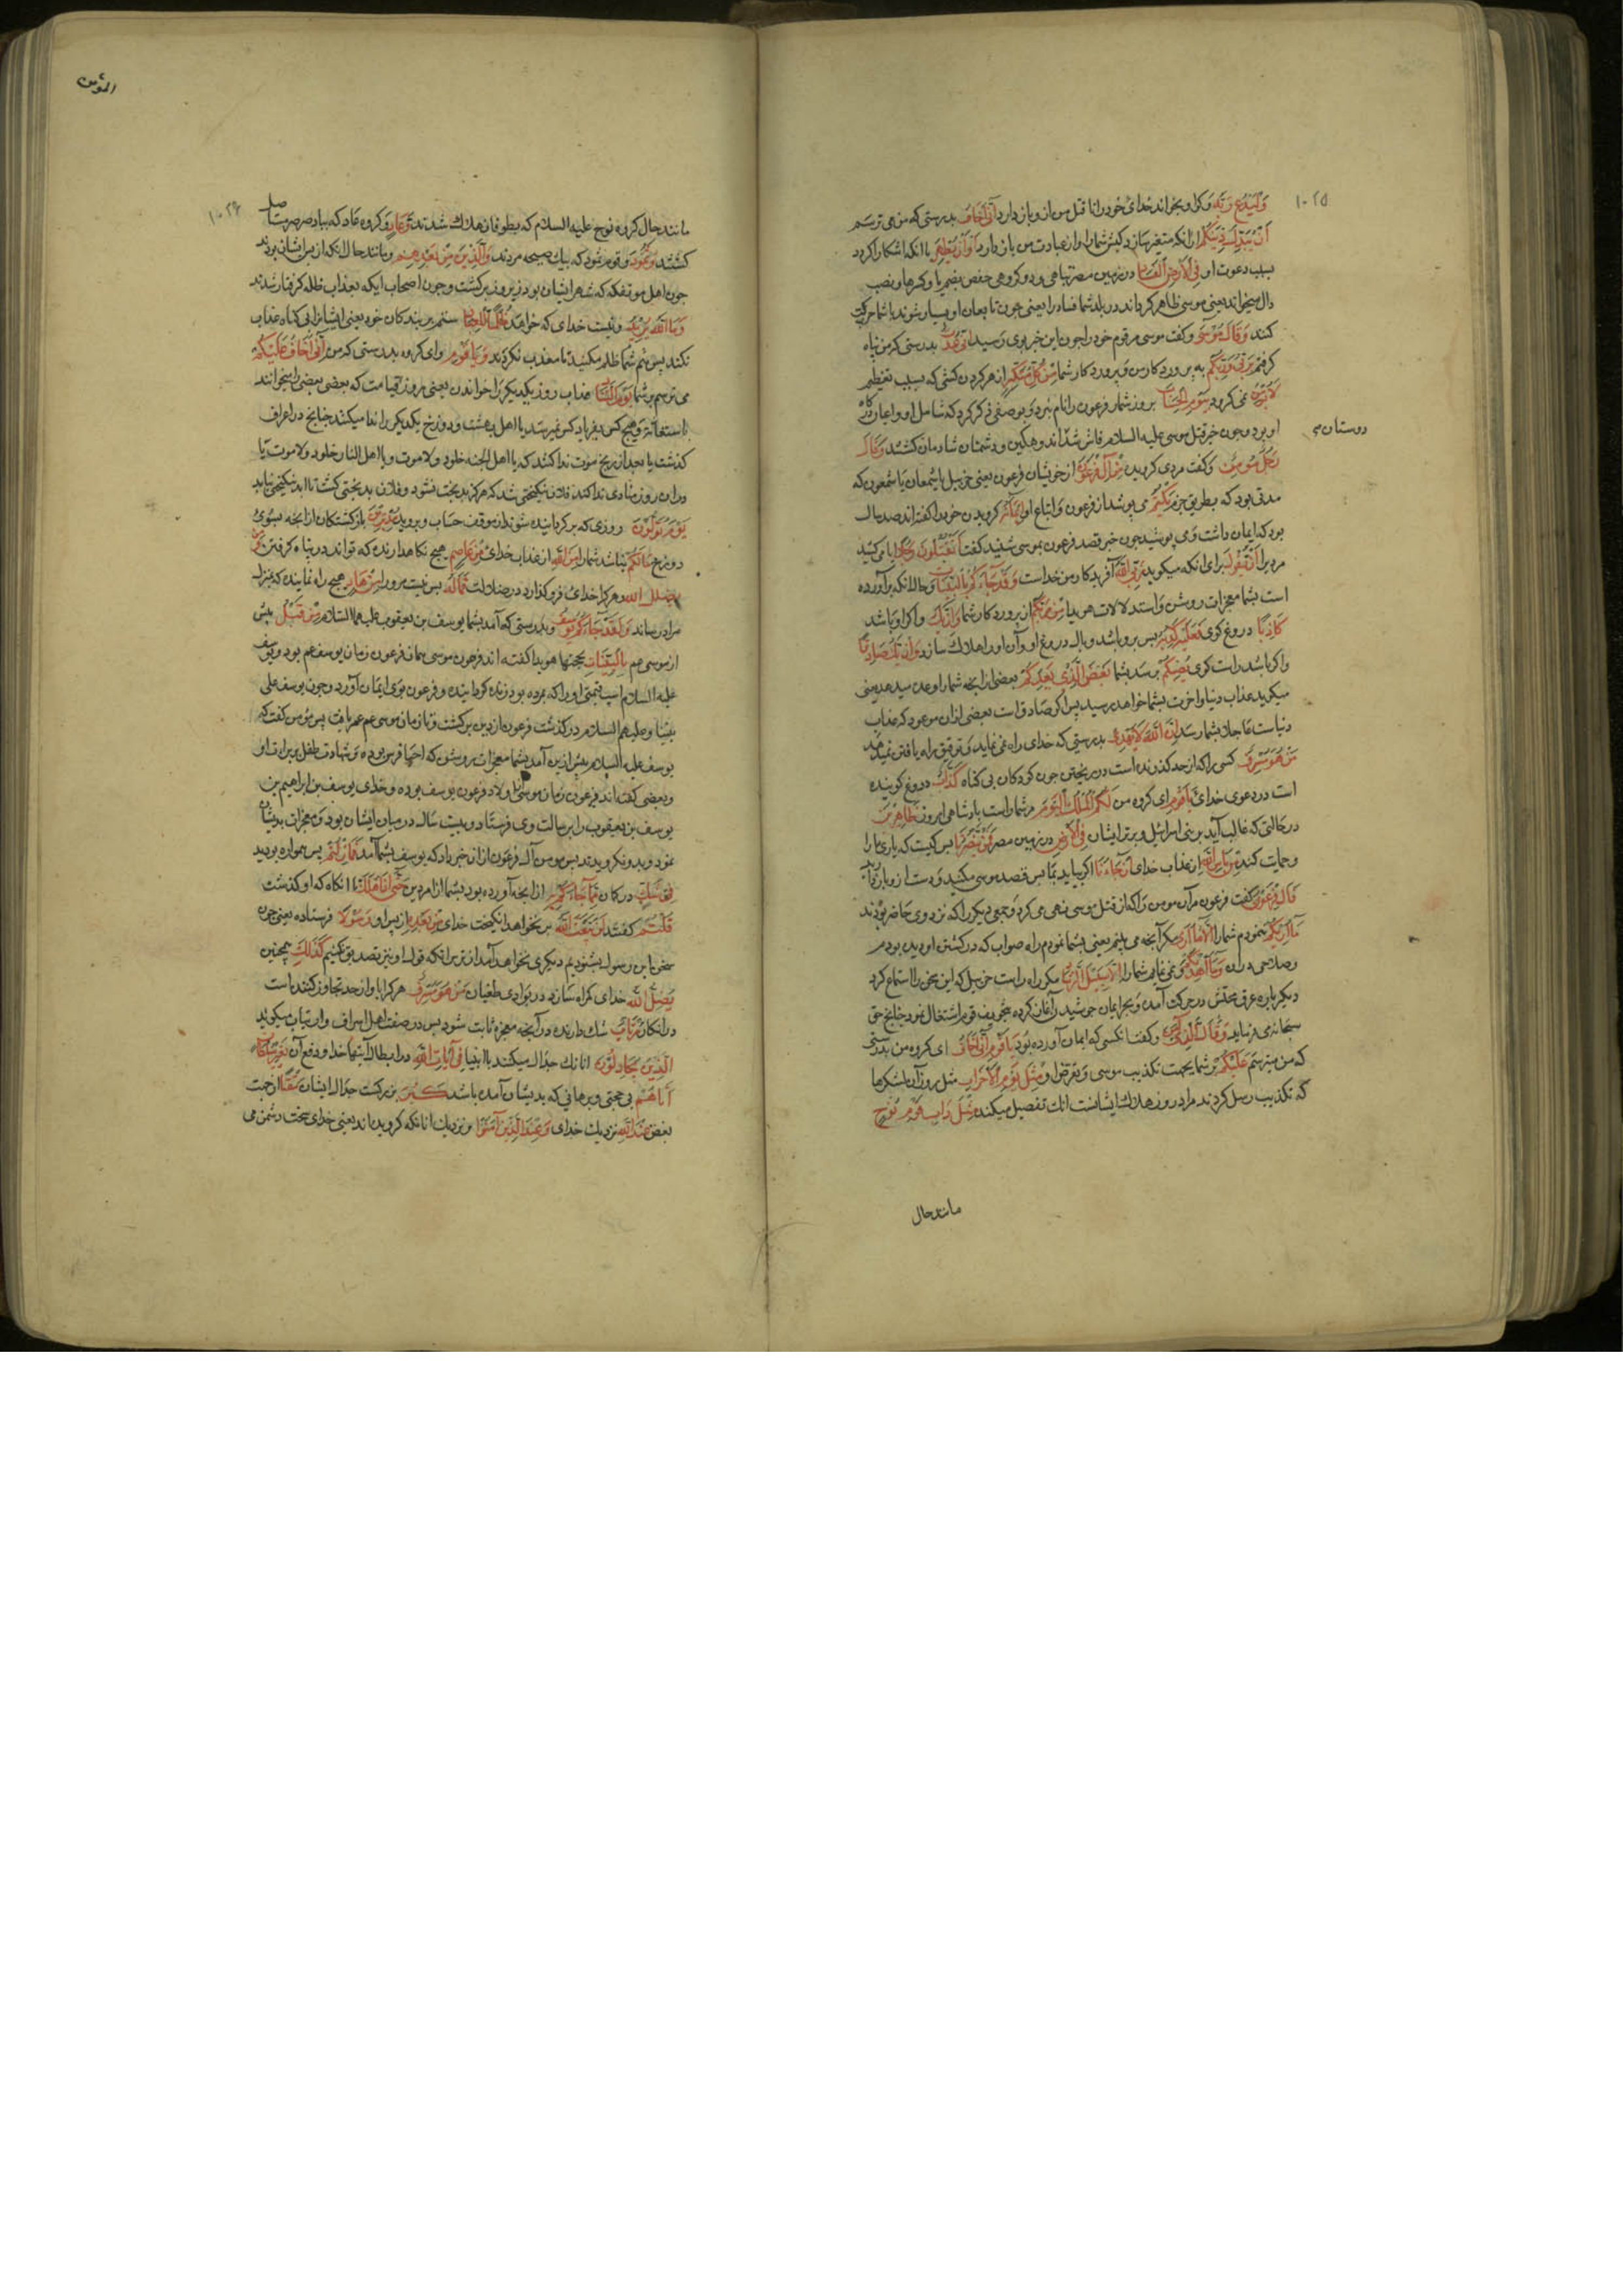 ١٠٢٥
وَلْيَدْعُ رَبَّهُ وکو او بخواند خدای خود را تا قتل من ازو باز دارد اِنّی اَخافُ بدرستی که من می ترسم
اَنْ یُبَدِّلَ دینَکُمْ از انکه متغیر سازد کیش شما را و از عبادت من باز دارد اَوْ اَنْ یُظْهِرَ یا انکه اشکارا کردد
بسبب دعوت او فِی الْاَرْضِ الْفَسادَ در زمین مصر تباهی
دال میخواند یعنی موسی ظاهر کرداند در بلد شما فساد را یعنی چون تابعان او بسیار شوند با شما حرکت
کنند وَقالَ مُوسی وکفت موسی مر قوم خود را چون این خبر بوی رسید اِنّی عُذْتُ بدرستی که من پناه
کرفتم بِرَبّی وَرَبِّکُمْ به پروردکار من و پروردکار شما مِنْ کُلِّ مُتَکَبِّرٍ از هر کردن کشی که بسبب تعظیم
لا یُؤْمِنُ نمی کرود بِیَوْمِ الْحِسابِ بروز شمار فرعون را نام نبرد و بوصفی ذکر کرد که شامل او و اعیان درکاه
او بود و چون خبر قتل موسی علیه السلام فاش شد اندوهکین و دشمنان شادمان کشتند وَقالَ
دوستان م
رَجُلٌ مُؤْمِنٌ وکفت مردی کرویده مِنْ آلِ فِرْعَوْنَ از خویشان فرعون یعنی حزبیل یا شمعان یا شمعون که
مدتی بود که بطریق حزم یَکْتُمُ می پوشد از فرعون و اتباع او اِیمانَهُ کرویدن خود را کفته اند صد سال
بود که ایمان داشت و می پوشید چون خبر قصد فرعون بموسی شنید کفت اَتَقْتُلُونَ رَجُلاً ایا می کشید
مردیرا اَنْ یَقُولَ برای انکه میکوید رَبِّیَ اللّهُ آفریدکار من خداست وَقَدْ جاءَکُمْ بِالْبَیِّناتِ وحال انکه براورده
است بشما معجزات روشن و استدلالات هویدا مِنْ رَبِّکُمْ از پروردکار شما وَاِنْ یَکُ و اکر او باشد
کاذِباً دروغ کوی فَعَلَیْهِ کَذِبُهُ پس بر و باشد وبال دروغ او و آن او را هلاک سازد وَاِنْ یَکُ صادِقاً
و اکر باشد راست کوی یُصِبْکُمْ برسد بشما بَعْضُ الَّذی یَعِدُکُمْ بعضی از انچه شما را وعده میدهد یعنی
میکوید عذاب دنیا و اخرت بشما خواهد رسید پس اکر صادق است بعضی ازان موعود که عذاب
دنیاست عاجلا بشما رسد اِنَّ اللّهَ لا یَهْدی بدرستی که خدای راه نمی نماید و توفیق راه یافتن نمیدهد
مَنْ هُوَ مُسْرِفٌ کسی را که از حد کذرنده است در ریختن خون کودکان بی کناه کَذّابٌ دروغ کوینده
است در دعوی خدای یا قَوْمِ ای کروه من لَکُمُ الْمُلْکُ الْیَوْمَ مر شما راست پادشاهی امروز ظاهِرینَ
در حالتی که غالب آید بر بنی اسرائیل و برتر ایشان فِی الْاَرْضِ در زمین مصر فَمَنْ یَنْصُرُنا پس کیست که یاری ما را
و حمایت کند مِنْ بَأْسِ اللّهِ از عذاب خدای اِنْ جاءَنا اکر بیاید بما پس قصد موسی مکنید و دست ازو باز دارید
قالَ فِرْعَوْنُ کفت فرعون مر آن مومن را که از قتل موسی نهی می کرد و جمعی دیکر را که نزد وی حاضر بودند
ما اُریکُمْ نمودم شما را اِلّا ما اَری مکر آنچه می بینم یعنی بشما نمودم راه صواب که در کشتن او دیده بودم
وصلاحی در ان وَما اَهْدیکُمْ و نمی نمایم شما را اِلّا سَبیلَ الرَّشادِ مکر راه راست حزبیل که این سخن را استماع کرد
دیکر باره عرق محبتش در حرکت آمده و بحر ایمان جوشیدن آغاز کرده بتخویف قوم اشتغال نمود چنانچ حق
سبحانه می فرماید وَقالَ الَّذی آمَنَ وکفت انکسی که ایمان آورده بود یا قَوْمِ اِنّی اَخافُ ای کروه من بدرستی
که من میترسم عَلَیْکُمْ بر شما بجهت تکذیب موسی و تعرض او مِثْلَ یَوْمِ الْاَحْزابِ مثل روز آن لشکرها
که تکذیب رسل کردند مراد روز هلاک ایشانست انک تفصیل میکند مِثْلَ دَأْبِ قَوْمِ نُوحٍ
مانند حال
المؤمن
١٠٢۶
مانند حال کروه نوح علیه السلام که بطوفان هلاک شدند وَعادٍ وکروه عاد که بباد صرصر مستاصل
کشتند وَثَمُودَ وقوم ثمود که بیک صیحه مردند وَالَّذینَ مِنْ بَعْدِهِمْ ومانند حال انکه از پس ایشان بودند
چون اهل موتفکه که شهر ایشان بود زیر و زبر کشت و چون اصحاب ایکه بعذاب ظله کرفتار شدند
وَمَا اللّهُ یُریدُ ونیست خدای که خواهد ظُلْماً لِلْعِبادِ ستم بر بندکان خود یعنی ایشانرا بی کناه عذاب
نکند پس هم شما ظلم مکنید تا معذب نکردند وَیا قَوْمِ و ای کروه بدرستی که من اِنّی اَخافُ عَلَیْکُمْ
می ترسم بر شما یَوْمَ التَّنادِ عذاب روز یکدیکر را خواندن یعنی روز قیامت که بعضی بعضی را میخوانند
باستغاثه و هیچ کس بفریاد کس نمیرسد یا اهل بهشت و دوزخ یکدیکر را ندا میکنند چنانچ در اعراف
کذشت یا بعد از ذبح موت ندا کنند که یا اهل الجنه خلود ولا موت ویا اهل النار خلود ولا موت یا
دران روز منادی ندا کند فلان نیکبختی شد که هرکز بدبخت نشود و فلان بدبختی کشت تا ابد نیکبختی نیابد
یَوْمَ تُوَلُّونَ روزی که بر کردانیده شوند از موقف حساب و بروید مُدْبِرینَ باز کشتکان از انجه بسوی
دوزخ ما لَکُمْ نباشد شما را مِنَ اللّهِ از عذاب خدای مِنْ عاصِمٍ هیچ نکاهدارنده که تواند در پناه کرفتن وَمَنْ
یُضْلِلِ اللّهُ وهر کرا خدای فرو کذارد در ضلالت فَما لَهُ پس نیست مر ورا مِنْ هادٍ هیچ راه نماینده که بمنزل
مراد رساند وَلَقَدْ جاءَکُمْ یُوسُفُ وبدرستی که آمد بشما یوسف بن یعقوب علیهما السلام مِنْ قَبْلُ پیش
از موسی عم بِالْبَیِّناتِ بحجتها هویدا کفته اند فرعون موسی همان فرعون زمان یوسف عم بود و یوسف
علیه السلام اسپ قیمتی او را که مرده بود زنده کردانیده و فرعون بوی ایمان آورد و چون یوسف علی
نبینا وعلیهم السلام در کذشت فرعون از دین بر کشت و تا زمان موسی عم عمر یافت پس مؤمن کفت که
یوسف علیه السلام پیش ازین آمد بشما معجزات روشن که احیا فرس بوده و شهادت طفل بر براءت او
وبعضی کفته اند فرعون زمان موسی از اولاد فرعون یوسف بوده و خدای یوسف بن ابراهیم بن
یوسف بن یعقوب را برسالت وی فرستاد و بیست سال در میان ایشان بود و معجزات بدیشان
نمود و بدو نکرویدند پس مومن آل فرعون ازان خبر داد که یوسف بشما آمد فَما زِلْتُمْ پس همواره بودید
فی شَکٍّ در کمان مِمّا جاءَکُمْ بِهِ از انچه آورده بود بشما از امر دین حَتّی اِذا هَلَکَ تا انکاه که او کذشت
قُلْتُمْ کفتند لَنْ یَبْعَثَ اللّهُ بر نخواهد انکیخت خدای مِنْ بَعْدِهِ از پس او رَسُولاً فرستاده یعنی چون
سخن این رسول نشنودیم دیکری نخواهد آمد از ترس انکه قول او نیز تصدیق نکنیم کَذلِکَ همچنین
یُضِلُّ اللّهُ خدای کمراه سازد در بوادی طغیان مَنْ هُوَ مُسْرِفٌ هر کرا با و از حد تجاوز کننده است
مُرْتابٌ شک دارنده در آنچه معجزه ثابت شود پس در صفت اهل اسراف و ارتیاب میکوید
اَلَّذینَ یُجادِلُونَ انانک جدال میکنند با انبیا فی آیاتِ اللّهِ در ابطال آیتها خدا و دفع آن بِغَیْرِ سُلْطانٍ
اَتاهُمْ بی حجتی و برهانی که بدیشان آمده باشد کَبُرَ بزرکست جدال ایشان مَقْتاً از جهت
بغض عِنْدَ اللّهِ نزدیک خدای وَعِنْدَ الَّذینَ آمَنُوا و نزدیک انانکه کرویده اند یعنی خدای سخت دشمن می